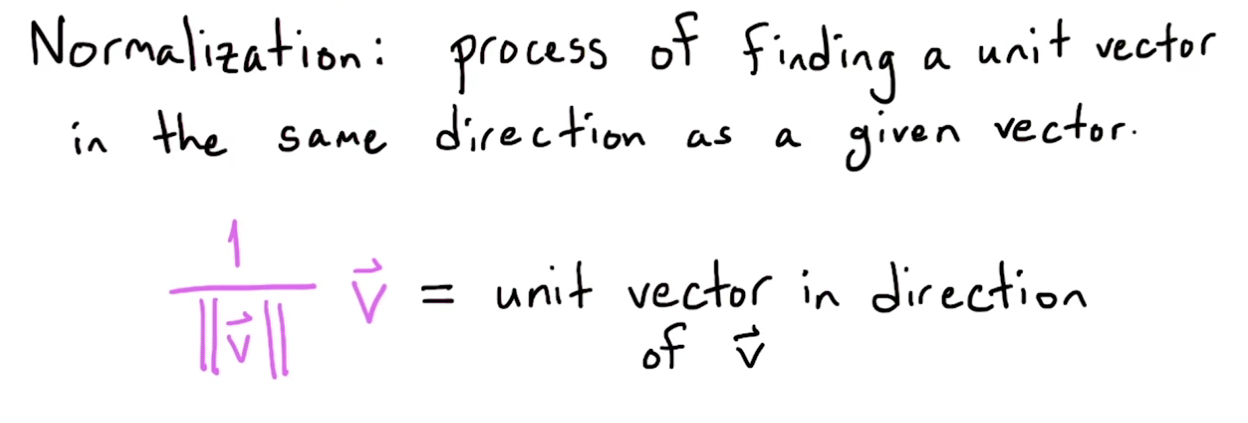 Normalization: process of finding a unit vector
in the same direction as a given vector.
1
‖v⃗‖ v⃗ = unit vector in direction
of v⃗